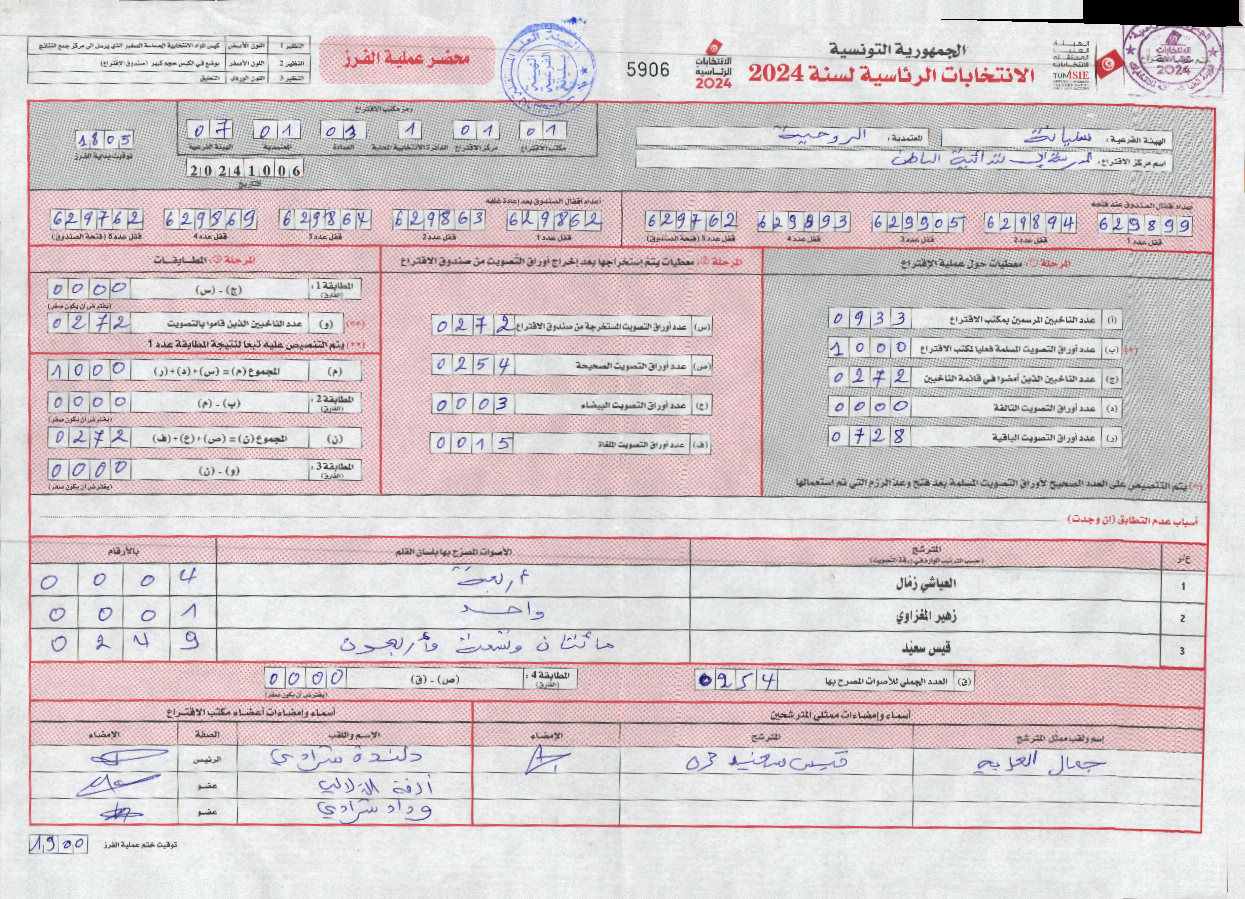 الجمهورية التونسية
الانتخابات الرئاسية لسنة 2024
الانتخابات الرئاسية 2024
5906
محضر عملية الفرز
النظير 1 اللون الأبيض
النظير 2 اللون الأصفر
النظير 3 اللون الوردي التعليق
الهيئة الفرعية : سليانة
المعتمدية : الروحية
اسم مركز الاقتراع :
رمز مكتب الاقتراع
01 01 1 03 01 07
مكتب الاقتراع مركز الاقتراع الدائرة الانتخابية المحلية العمادة المعتمدية الهيئة الفرعية
1805
توقيت بداية الفرز
20241006
التاريخ
أعداد أقفال الصندوق عند فتحه
629899 629894 629905 629893 629762
قفل عدد 1 قفل عدد 2 قفل عدد 3 قفل عدد 4 قفل عدد 5 (فتحة الصندوق)
أعداد أقفال الصندوق بعد إعادة غلقه
629862 629863 629864 629869 629762
قفل عدد 1 قفل عدد 2 قفل عدد 3 قفل عدد 4 قفل عدد 5 (فتحة الصندوق)
المرحلة 1: معطيات حول عملية الإقتراع
(أ) عدد الناخبين المرسمين بمكتب الاقتراع 0933
(*) (ب) عدد أوراق التصويت المسلمة فعليا لمكتب الاقتراع 1000
(ج) عدد الناخبين الذين أمضوا في قائمة الناخبين 0272
(د) عدد أوراق التصويت التالفة 0000
(ر) عدد أوراق التصويت الباقية 0728
(*) يتم التنصيص على العدد الصحيح لأوراق التصويت المسلمة بعد فتح وعد الرزم التي تم استعمالها
المرحلة 2: معطيات يتم إستخراجها بعد إخراج أوراق التصويت من صندوق الاقتراع
(س) عدد أوراق التصويت المستخرجة من صندوق الاقتراع 0272
(ص) عدد أوراق التصويت الصحيحة 0254
(ع) عدد أوراق التصويت البيضاء 0003
(ف) عدد أوراق التصويت الملغاة 0015
المرحلة 3: المطابقات
المطابقة 1: (الفارق) (ج) - (س) 0000
(يفترض أن يكون صفر)
(**) (و) عدد الناخبين الذين قاموا بالتصويت 0272
(**) يتم التنصيص عليه تبعا لنتيجة المطابقة عدد 1
(م) المجموع (م) = (س) + (د) + (ر) 1000
المطابقة 2: (الفارق) (ب) - (م) 0000
(يفترض أن يكون صفر)
(ن) المجموع (ن) = (ص) + (ع) + (ف) 0272
المطابقة 3: (الفارق) (و) - (ن) 0000
(يفترض أن يكون صفر)
أسباب عدم التطابق (إن وجدت)
ع/ر المترشح الأصوات المصرح بها بلسان القلم بالأرقام
(حسب الترتيب الوارد في ورقة التصويت)
1 العياشي زمّال أربعة 0004
2 زهير المغزاوي واحد 0001
3 قيس سعيّد مائتان وتسعة وأربعون 0249
(ق) العدد الجملي للأصوات المصرح بها 0254
المطابقة 4: (الفارق) (ص) - (ق) 0000
(يفترض أن يكون صفر)
أسماء وإمضاءات ممثلي المترشحين
إسم ولقب ممثل المترشح المترشح الإمضاء
جمال العربي قيس سعيد
أسماء وإمضاءات أعضاء مكتب الاقتراع
الاسم واللقب الصفة الإمضاء
الرئيس
ألفة عضو
وداد عضو
توقيت ختم عملية الفرز 1900